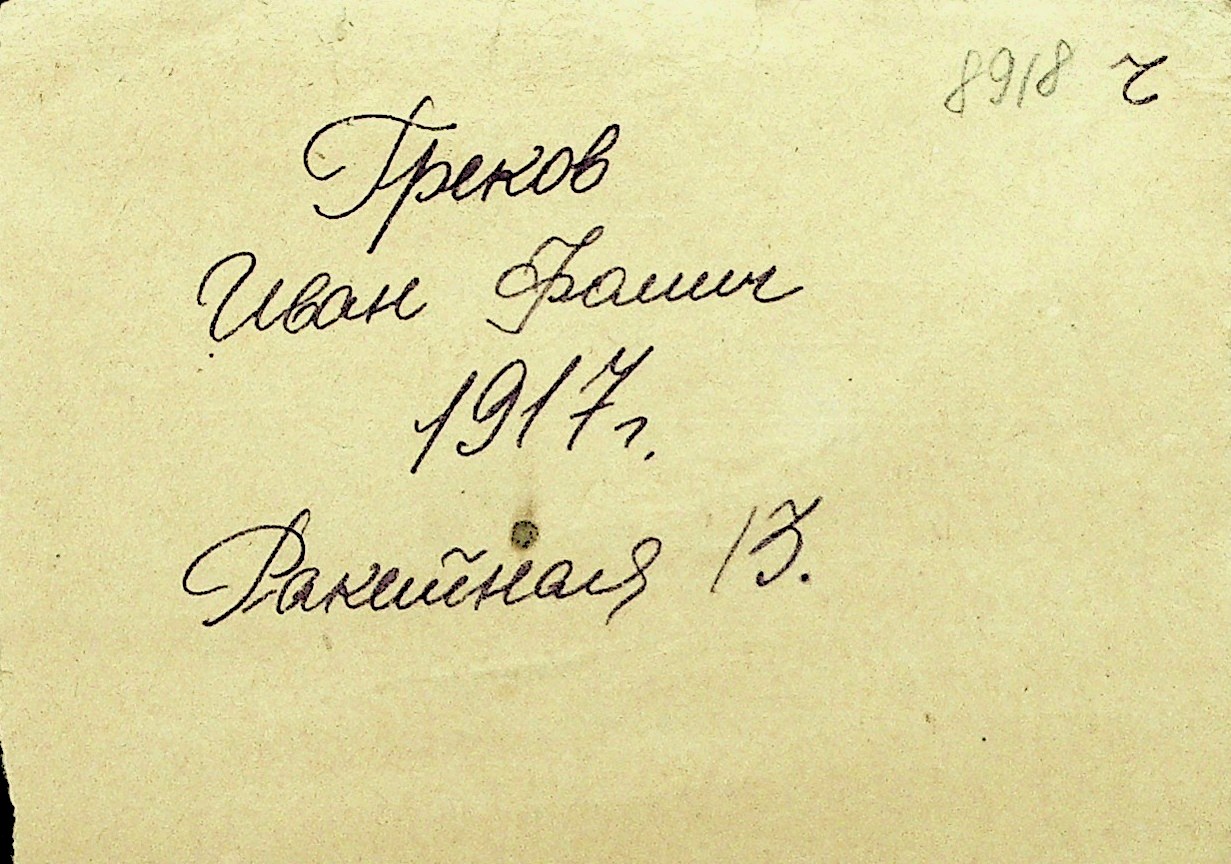 8918 ч
Греков
Иван Фомич
1917г.
Ракитная 13.